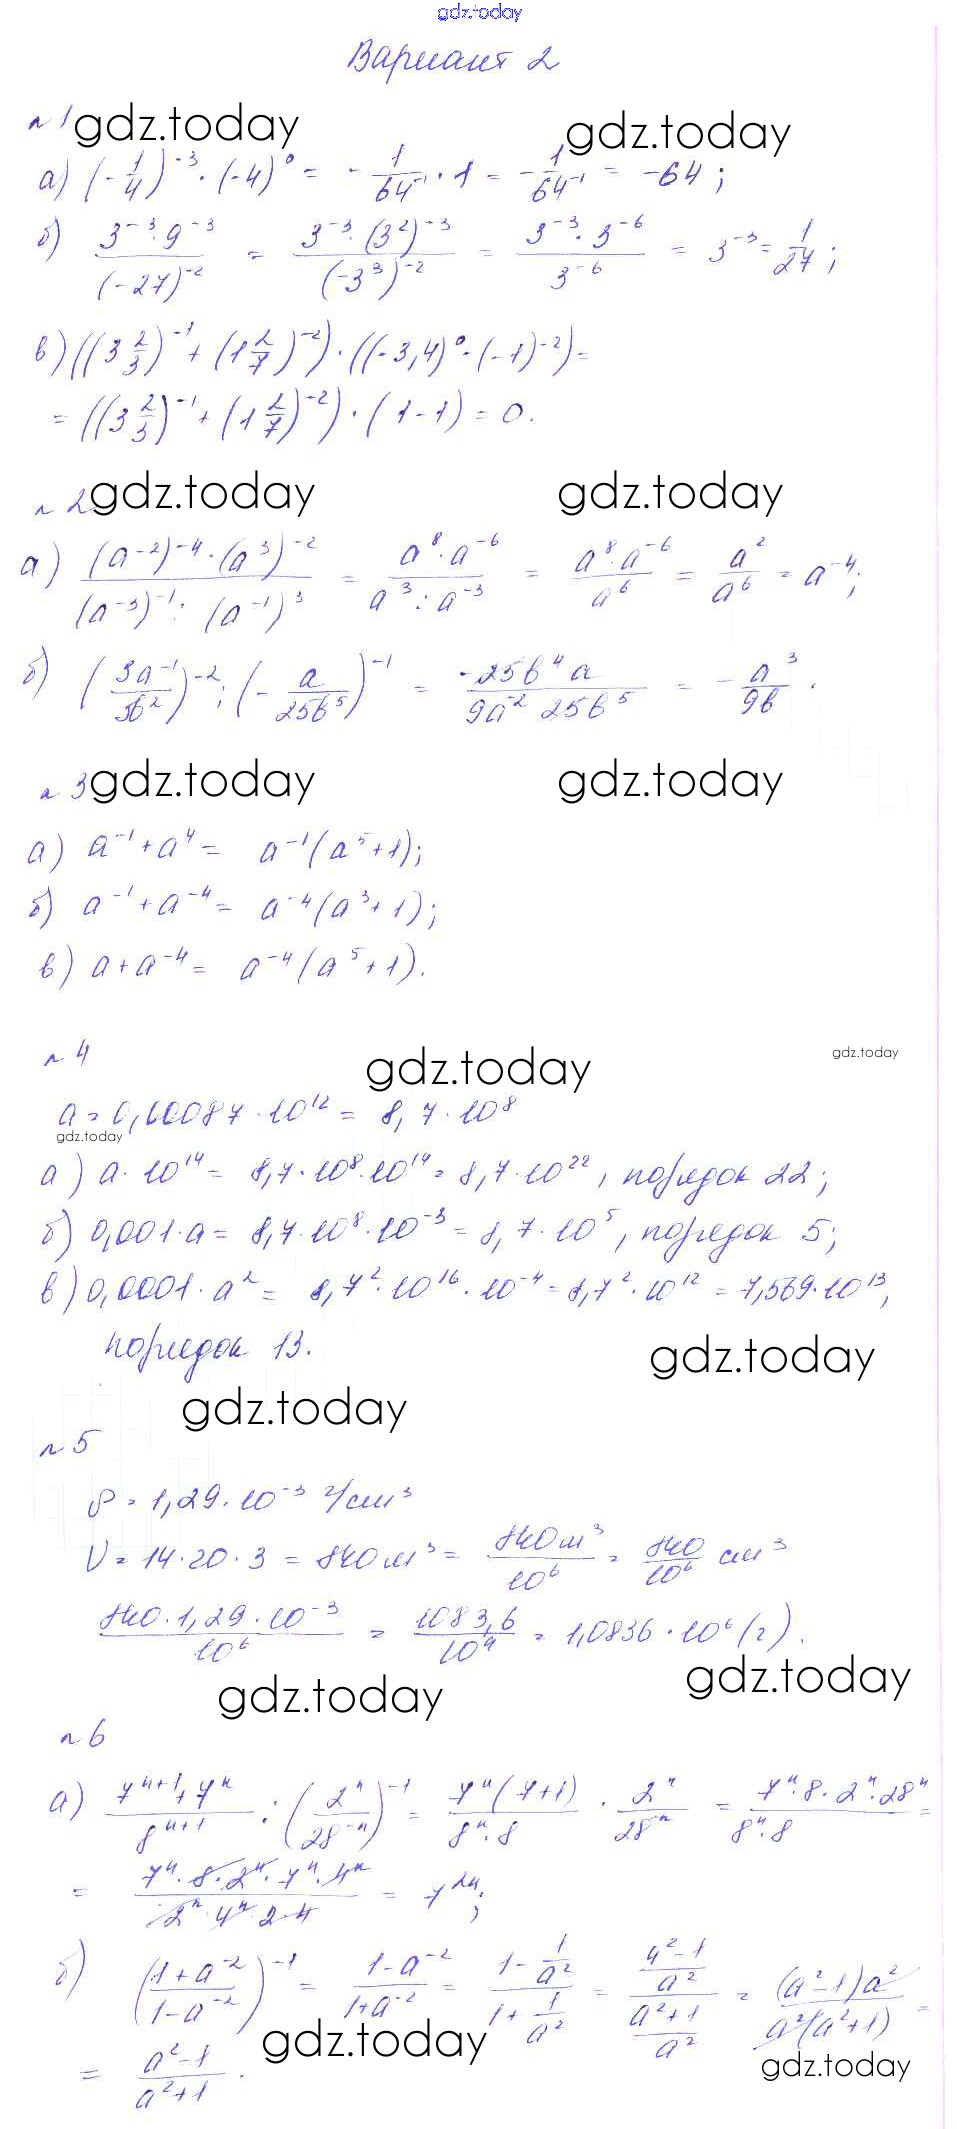 gdz.today
Вариант 2
№1 gdz.today gdz.today
а) (-1/4)^-3 · (-4)^0 = -1/64^-1 · 1 = -1/64^-1 = -64;
б) 3^-3 · 9^-3 / (-27)^-2 = 3^-3 · (3^2)^-3 / (-3^3)^-2 = 3^-3 · 3^-6 / 3^-6 = 3^-3 = 1/27;
в) ((3 2/3)^-1 + (1 2/7)^-2) · ((-3,4)^0 - (-1)^-2) =
= ((3 2/3)^-1 + (1 2/7)^-2) · (1-1) = 0.
№2 gdz.today gdz.today
а) (a^-2)^-4 · (a^3)^-2 / (a^-3)^-1 : (a^-1)^3 = a^8 · a^-6 / a^3 : a^-3 = a^8 · a^-6 / a^6 = a^2 / a^6 = a^-4;
б) (3a^-1 / 5b^2)^-2 : (-a / 25b^5)^-1 = -25b^4 a / 9a^-2 25b^5 = -a^3 / 9b.
№3 gdz.today gdz.today
а) a^-1 + a^4 = a^-1 (a^5+1);
б) a^-1 + a^-4 = a^-4 (a^3+1);
в) a + a^-4 = a^-4 (a^5+1).
№4 gdz.today gdz.today
a = 0,00087 · 10^12 = 8,7 · 10^8
gdz.today
а) a · 10^14 = 8,7 · 10^8 · 10^14 = 8,7 · 10^22, порядок 22;
б) 0,001 · a = 8,7 · 10^8 · 10^-3 = 8,7 · 10^5, порядок 5;
в) 0,0001 · a^2 = 8,7^2 · 10^16 · 10^-4 = 8,7^2 · 10^12 = 7,569 · 10^13,
порядок 13. gdz.today
gdz.today
№5
ρ = 1,29 · 10^-3 г/см^3
V = 14 · 20 · 3 = 840 м^3 = 840 м^3 / 10^6 = 840 / 10^6 см^3
840 · 1,29 · 10^-3 / 10^6 = 1083,6 / 10^4 = 1,0836 · 10^6 (г).
gdz.today gdz.today
№6
а) 7^n+1 + 7^n / 8^n+1 : (2^n / 28^-n)^-1 = 7^n (7+1) / 8^n · 8 · 2^n / 28^-n = 7^n · 8 · 2^n · 28^n / 8^n · 8 =
= 7^n · 8 · 2^n · 7^n · 4^n / 2^n · 4^n · 2 · 4 = 7^2n;
б) (1+a^-2 / 1-a^-2)^-1 = 1-a^-2 / 1+a^-2 = 1 - 1/a^2 / 1 + 1/a^2 = a^2-1 / a^2 / a^2+1 / a^2 = (a^2-1) a^2 / a^2 (a^2+1) =
gdz.today
gdz.today
= a^2-1 / a^2+1.